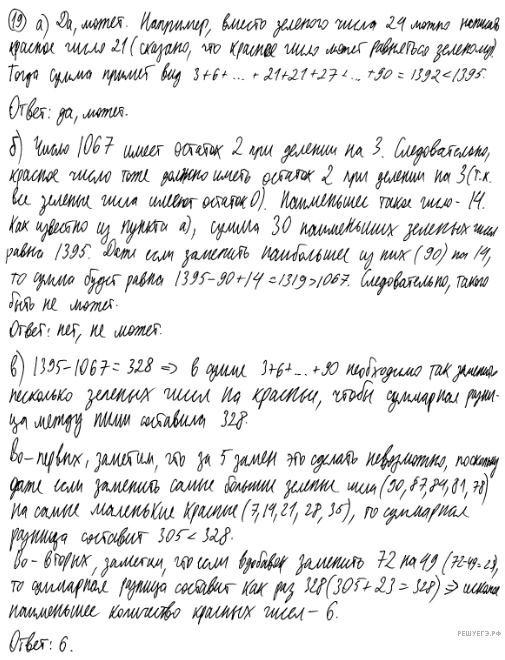 19) а) Да, может. Например, вместо зеленого числа 24 можно написать
красное число 21 (сказано, что красное число может равняться зеленому).
Тогда сумма примет вид 3+6+...+21+21+27+...+90=1392<1395.
Ответ: да, может.
б) Число 1067 имеет остаток 2 при делении на 3. Следовательно,
красное число тоже должно иметь остаток 2 при делении на 3 (т.к.
все зеленые числа имеют остаток 0). Наименьшее такое число - 14.
Как известно из пункта а), сумма 30 наименьших зеленых чисел
равна 1395. Даже если заменить наибольшее из них (90) на 14,
то сумма будет равна 1395-90+14=1319>1067. Следовательно, такого
быть не может.
Ответ: нет, не может.
в) 1395-1067=328 => в сумме 3+6+...+90 необходимо так заменить
несколько зеленых чисел на красные, чтобы суммарная разни-
ца между ними составила 328.
Во-первых, заметим, что за 5 замен это сделать невозможно, поскольку
даже если заменить самые большие зеленые числа (90,87,84,81,78)
на самые маленькие красные (7,14,21,28,35), то суммарная
разница составит 305<328.
Во-вторых, заметим, что если вдобавок заменить 72 на 49 (72-49=23),
то суммарная разница составит как раз 328 (305+23=328) => искомое
наименьшее количество красных чисел - 6.
Ответ: 6.
РЕШУЕГЭ.РФ